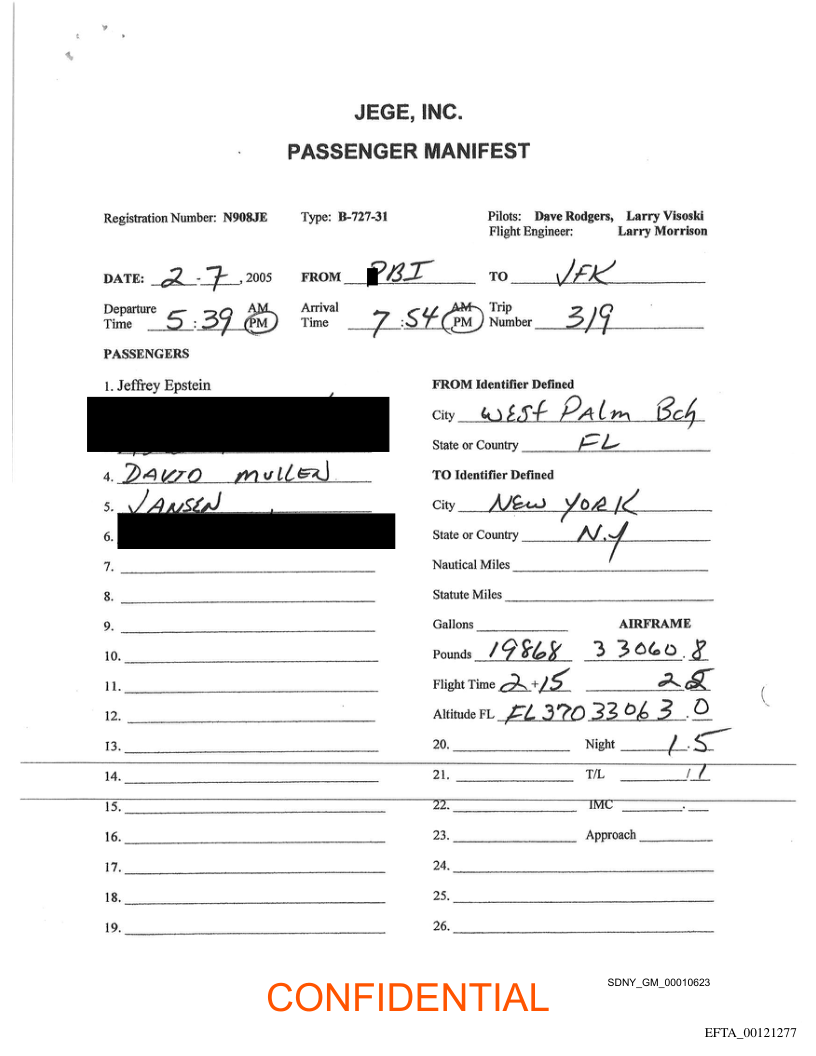 JEGE, INC.
PASSENGER MANIFEST
Registration Number: N908JE Type: B-727-31 Pilots: Dave Rodgers, Larry Visoski
Flight Engineer: Larry Morrison
DATE: 2-7, 2005 FROM PBI TO JFK
Departure Time 5:39 AM PM Arrival Time 7:54 AM PM Trip Number 319
PASSENGERS
1. Jeffrey Epstein FROM Identifier Defined
City WEST PALM Bch
State or Country FL
4. DAVID MULLEN TO Identifier Defined
5. JANSEN City NEW YORK
6. State or Country N.Y
7. Nautical Miles
8. Statute Miles
9. Gallons AIRFRAME
10. Pounds 19868 33060.8
11. Flight Time 2+15
12. Altitude FL FL370 33063.0
13. 20. Night 1.5
14. 21. T/L 1/1
15. 22. IMC .
16. 23. Approach
17. 24.
18. 25.
19. 26.
SDNY_GM_00010623
CONFIDENTIAL
EFTA_00121277